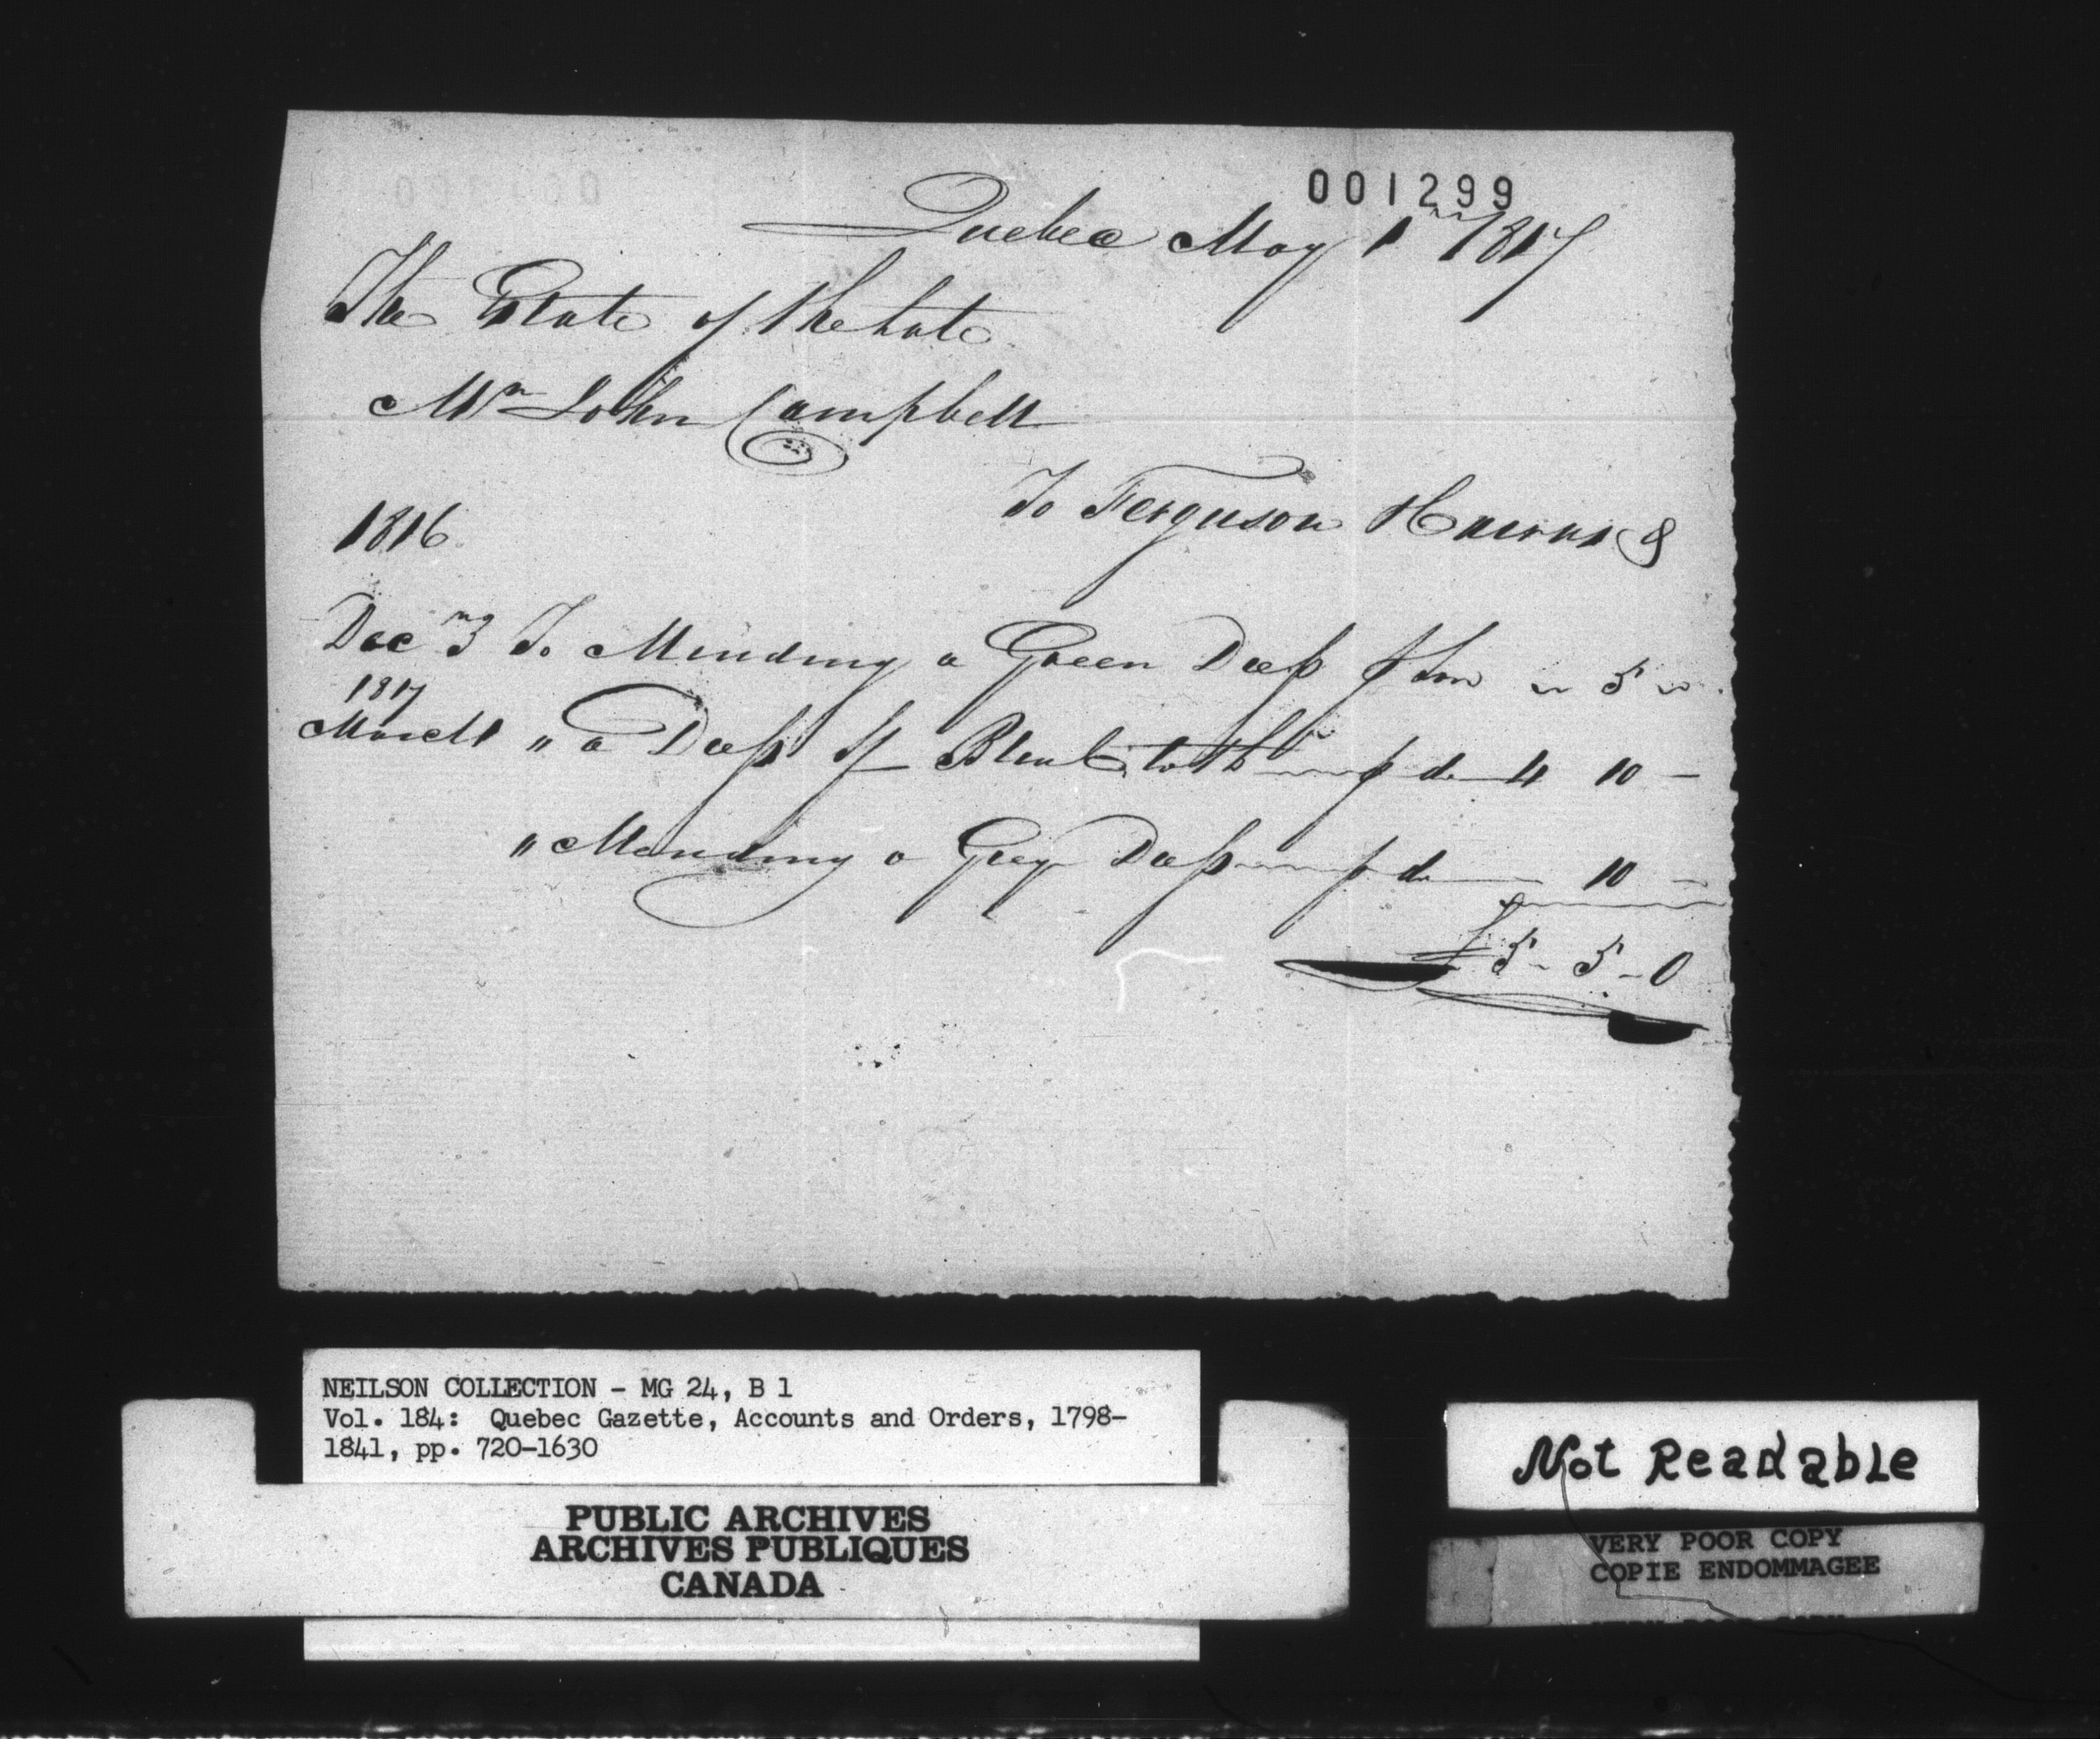 001299
Quebec May 1st 1817
The Estate of the Late
Mr John Campbell
To Ferguson &
1816
Decr 3 To Mending a Green Dress 5
1817
March " a Dress of Blue Cloth p do 4 10 -
" Mending a Grey Dress p do 10 -
£5-5-0
NEILSON COLLECTION - MG 24, B 1
Vol. 184: Quebec Gazette, Accounts and Orders, 1798-
1841, pp. 720-1630
PUBLIC ARCHIVES
ARCHIVES PUBLIQUES
CANADA
Not Readable
VERY POOR COPY
COPIE ENDOMMAGEE